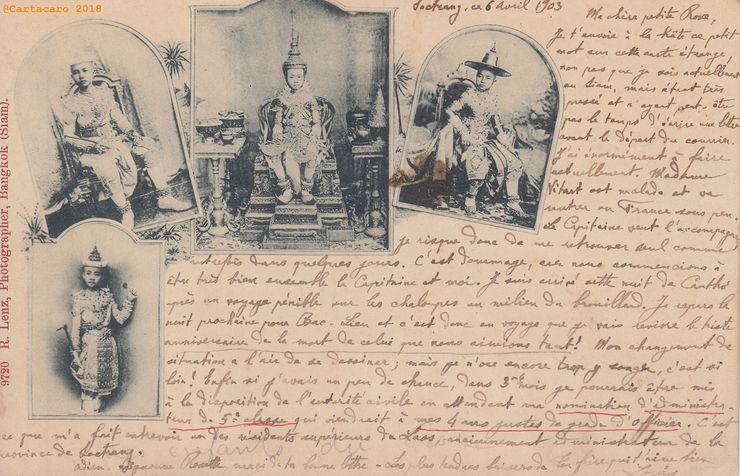 @Cartacaro 2018
9720 R. Lenz, Photographer, Bangkok (Siam).
Soctrang, ce 6 avril 1903
Ma chère petite Rose,
Je t'envoie à la hâte ce petit
mot sur cette carte étrange,
non pas que je sois actuellement
au Siam, mais étant très
pressé et n'ayant peut-être
pas le temps d'écrire une lettre
avant le départ du courrier.
J'ai énormément à faire
actuellement. Madame
Vitart est malade et va
rentrer en France sous peu.
Le Capitaine veut l'accompagner
je risque donc de me retrouver seul comme
dans quelques jours. C'est dommage, car nous commencions à
être très bien ensemble le Capitaine et moi. Je suis arrivé cette nuit de Canthô
après un voyage pénible sur les chaloupes au milieu du brouillard. Je repars la
nuit prochaine pour Bac-Lieu et c'est donc en voyage que je vais revivre le triste
anniversaire de la mort de celui que nous aimions tant! Mon changement de
situation a l'air de se dessiner; mais je n'ose encore trop y songer, c'est si
loin! Enfin si j'avais un peu de chance, dans 3 mois je pourrais être mis
à la disposition de l'autorité civile en attendant ma nomination d'administra-
teur de 5e classe qui viendrait à mes 4 ans justes de grade d'officier. C'est
ce que m'a fait entrevoir un des résidents supérieurs du Laos, anciennement administrateur de la
province de Soctrang.
adieu, Rosette, merci de ta bonne lettre - Les plus tendres baisers de ton frère qui t'aime bien